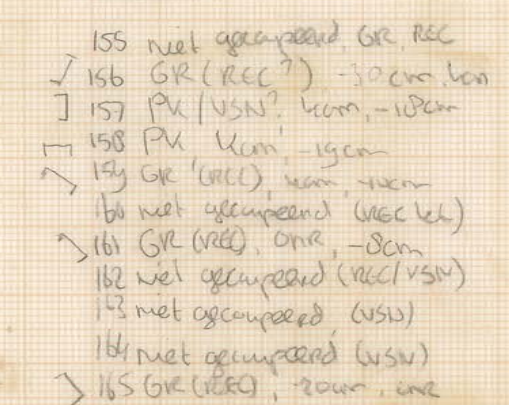 155 niet gecoupeerd, GR, REC
156 GR (REC?) -30cm, kom
157 PK/VSN?, kom, -18cm
158 PK kom, -19cm
159 GR (REC), kom,
160 niet gecoupeerd (REC
161 GR (REC), onR, -8cm
162 niet gecoupeerd (REC/VSN)
163 niet gecoupeerd (VSN)
164 niet gecoupeerd (VSN)
165 GR (REC), onR